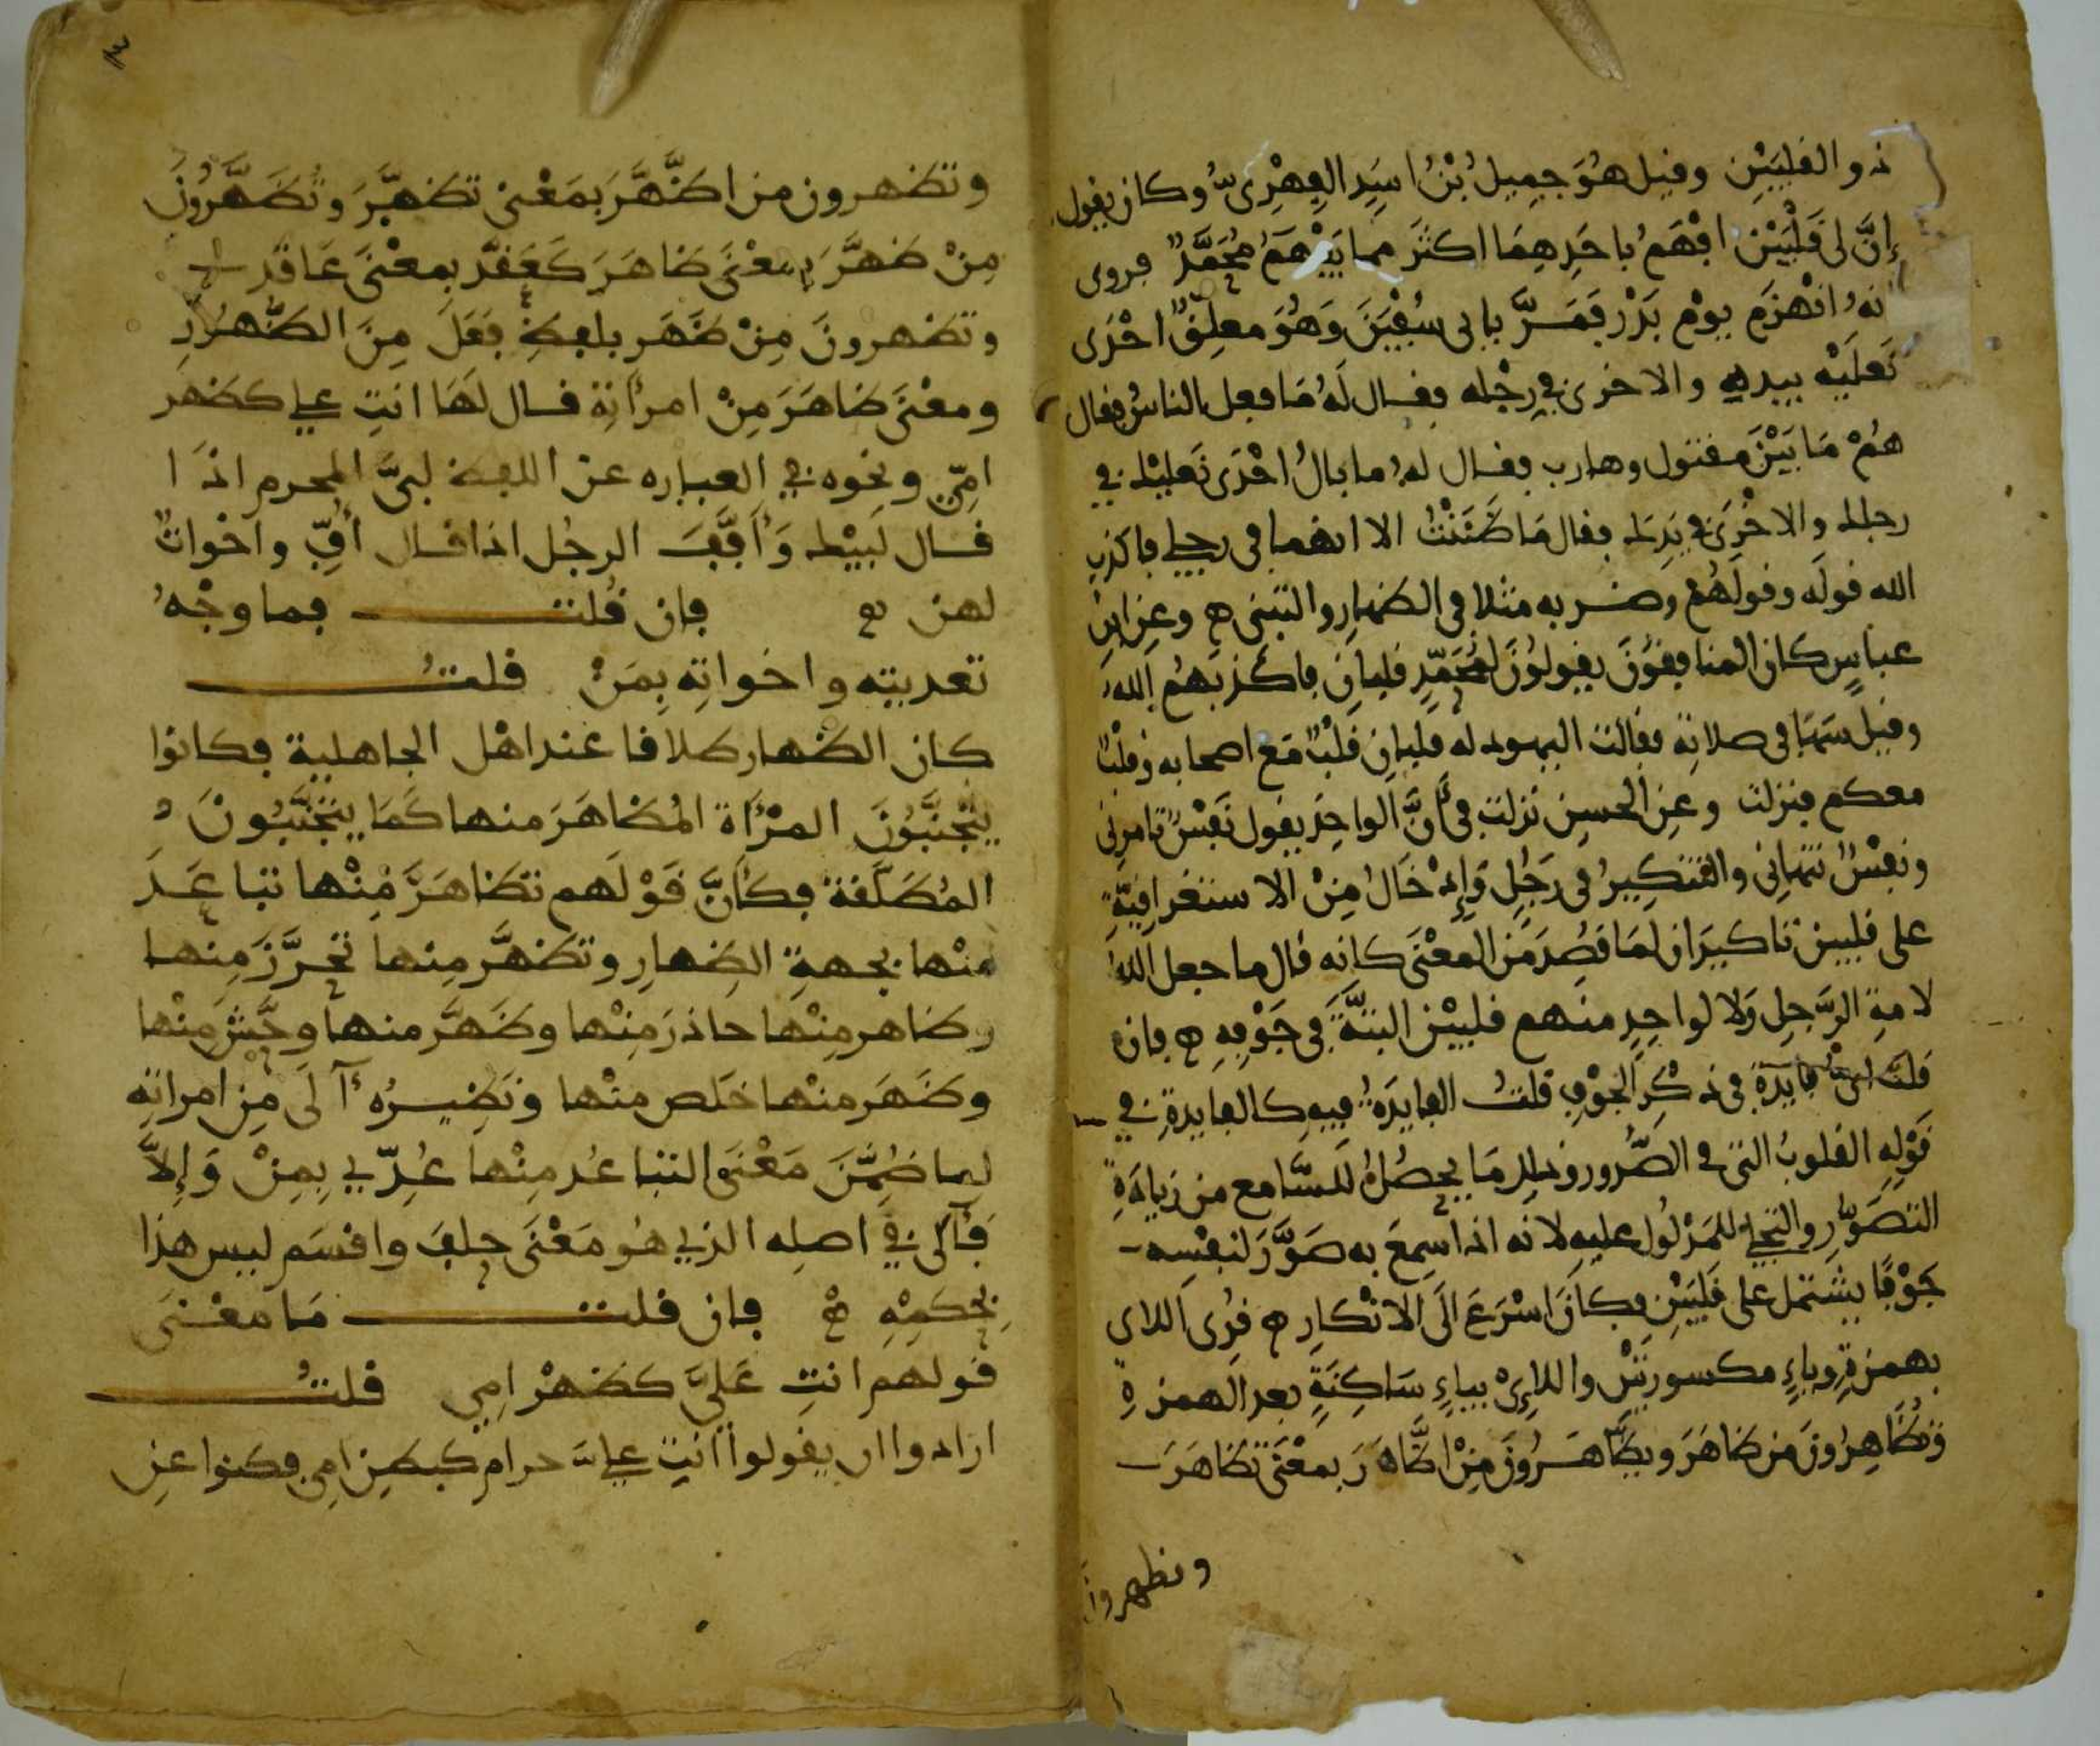 ذو القلبين وقيل هُوَ جميل بْنُ اسَيد الفِهْرِىّ وكان يقول
إنَّ لى قَلْبَيْن افْهَمُ باحَدِهِمَا اكثَر مما يَفْهَمُ مُحَمَّدٌ فروى
انهُ انْهَزَم يوْم بَدْر فَمَرَّ بابى سُفْيَنَ وَهُوَ معلِقٌ احْدَى
نَعلَيْه بيده والاخرى فى رِجْله فقال لَهُ مَا فعل الناسُ فقال
هُمْ مَا بَيْنَ مقتول وهارب فقال له ما بالُ احْدَى نَعليْك فى
رجلك والاخْرَى فى يَدِك فقال مَا ظَنَنْتُ الا انهما فى رجلي فاكذب
الله قوله وقولَهُمْ وضربه مثلا فى الظهارِ والتبنى ۞ وعنِ ابن
عباسٍ كان المنافقوْنَ يقولوْنَ لمُحَمَّدٍ قلبانِ فاكْذبَهُم اللهُ
وقيل سَهَا فى صلاتِه فقالت اليهود له قلبانِ قلْبٌ مَع اصحابه وقلْبٌ
معكم فنزلت وعنِ الحسنِ نزلت فى أنَّ الواحِدَ يقول نَفْسٌ تامرنى
ونفْسٌ تنهانى والتنكِيرُ فى رَجُلٍ وَإدْخَالُ مِنْ الاستغراقِيَّةِ
على قلبين تاكيدَان لمَا قصِدَ مَن المعْنَى كانه قال ما جعل اللهُ
لامةِ الرّجِلِ وَلا لواحِدٍ منهم قلبيْن البتَّةَ فى جَوْفِهِ ۞ فان
قلت اىُّ فايدَةٍ فى ذكْرِ الجوْفِ قلتُ الفايدَةُ فيهِ كالفايدةِ فى
قوْلِهِ القلوبُ التى فى الصُّدور وذلك مَا يحصُلُ للسَّامع من زيادَةِ
التصَوُّرِ والتجلى للمَدْلُول عليهِ لانه اذا سمِعَ به صَوَّرَ لنفْسِه
جَوْفًا يشتمل على قلبَيْنِ فكانَ اسْرَعَ الَى الانْكارِ ۞ قرِى اللاى
بهمزةٍ وياءٍ مكسورتيْن واللاىْ بياءٍ سَاكِنَةٍ بعد الهمزةِ
وَتُظَاهِرُونَ من ظَاهَرَ ويظَّاهَرُونَ مِنْ اظَّاهَرَ بمعْنَى تظَاهَرَ
وتظهرون
٣
وتظهرون من اظَّهَّرَ بمَعْنى تظهَّرَ وتُظَهِّرُونَ
مِنْ ظهَّرَ بمعْنَى ظاهَرَ كَعَقّد بمعْنَى عَاقد
وتظهرونَ مِنْ ظَهَر بلفظِ فعَلَ مِنَ الظُّهُورِ
ومعْنَى ظاهَرَ مِنْ امراتِه قال لَهَا انتِ على كظهر
امِّى ونحْوه فى العباره عن اللفظ لبَّى المحرم اذا
قال لَبيْك وَأفَّفَ الرجُل اذا قال أفّ واخْواتٌ
لهن ۞ فان قُلت فما وجْهُ
تعديته واخواتِه بِمَنْ قلتُ
كان الظهار طلاقا عند اهْل الجاهلية فكانوا
يتْجنَّبُونَ المرْأة المُظاهَرَ منها كَمَا يتجنَّبُونَ
المُطلَّقة فكأنَّ قوْلَهم تظاهَرَ مِنْها تباعَدَ
منْها بجهةِ الظِهارِ وتظهَّر منها تحرَّزَ منها
وظاهر مِنْها حاذرَ مِنْها وظَهَّر منها وحَّشَ مِنْها
وظَهَر منها خَلص منْها ونَظِيرُهُ آلَى مِن امراتِه
لما ضُمِّنَ مَعْنَى التباعُد منْها عُدّي بِمِنْ وَإلاَّ
فَآلَى فى اصلِه الذي هُو مَعْنَى حلفَ واقسَم ليس هذا
بحكمِهِ ۞ فان قلت مَا معْنى
قولهم انتِ عَلىَّ كظهْر امِي قلتُ
ارادوا ان يقولوا انتِ علىَّ حرام كبطن امى فكنوا عنِ